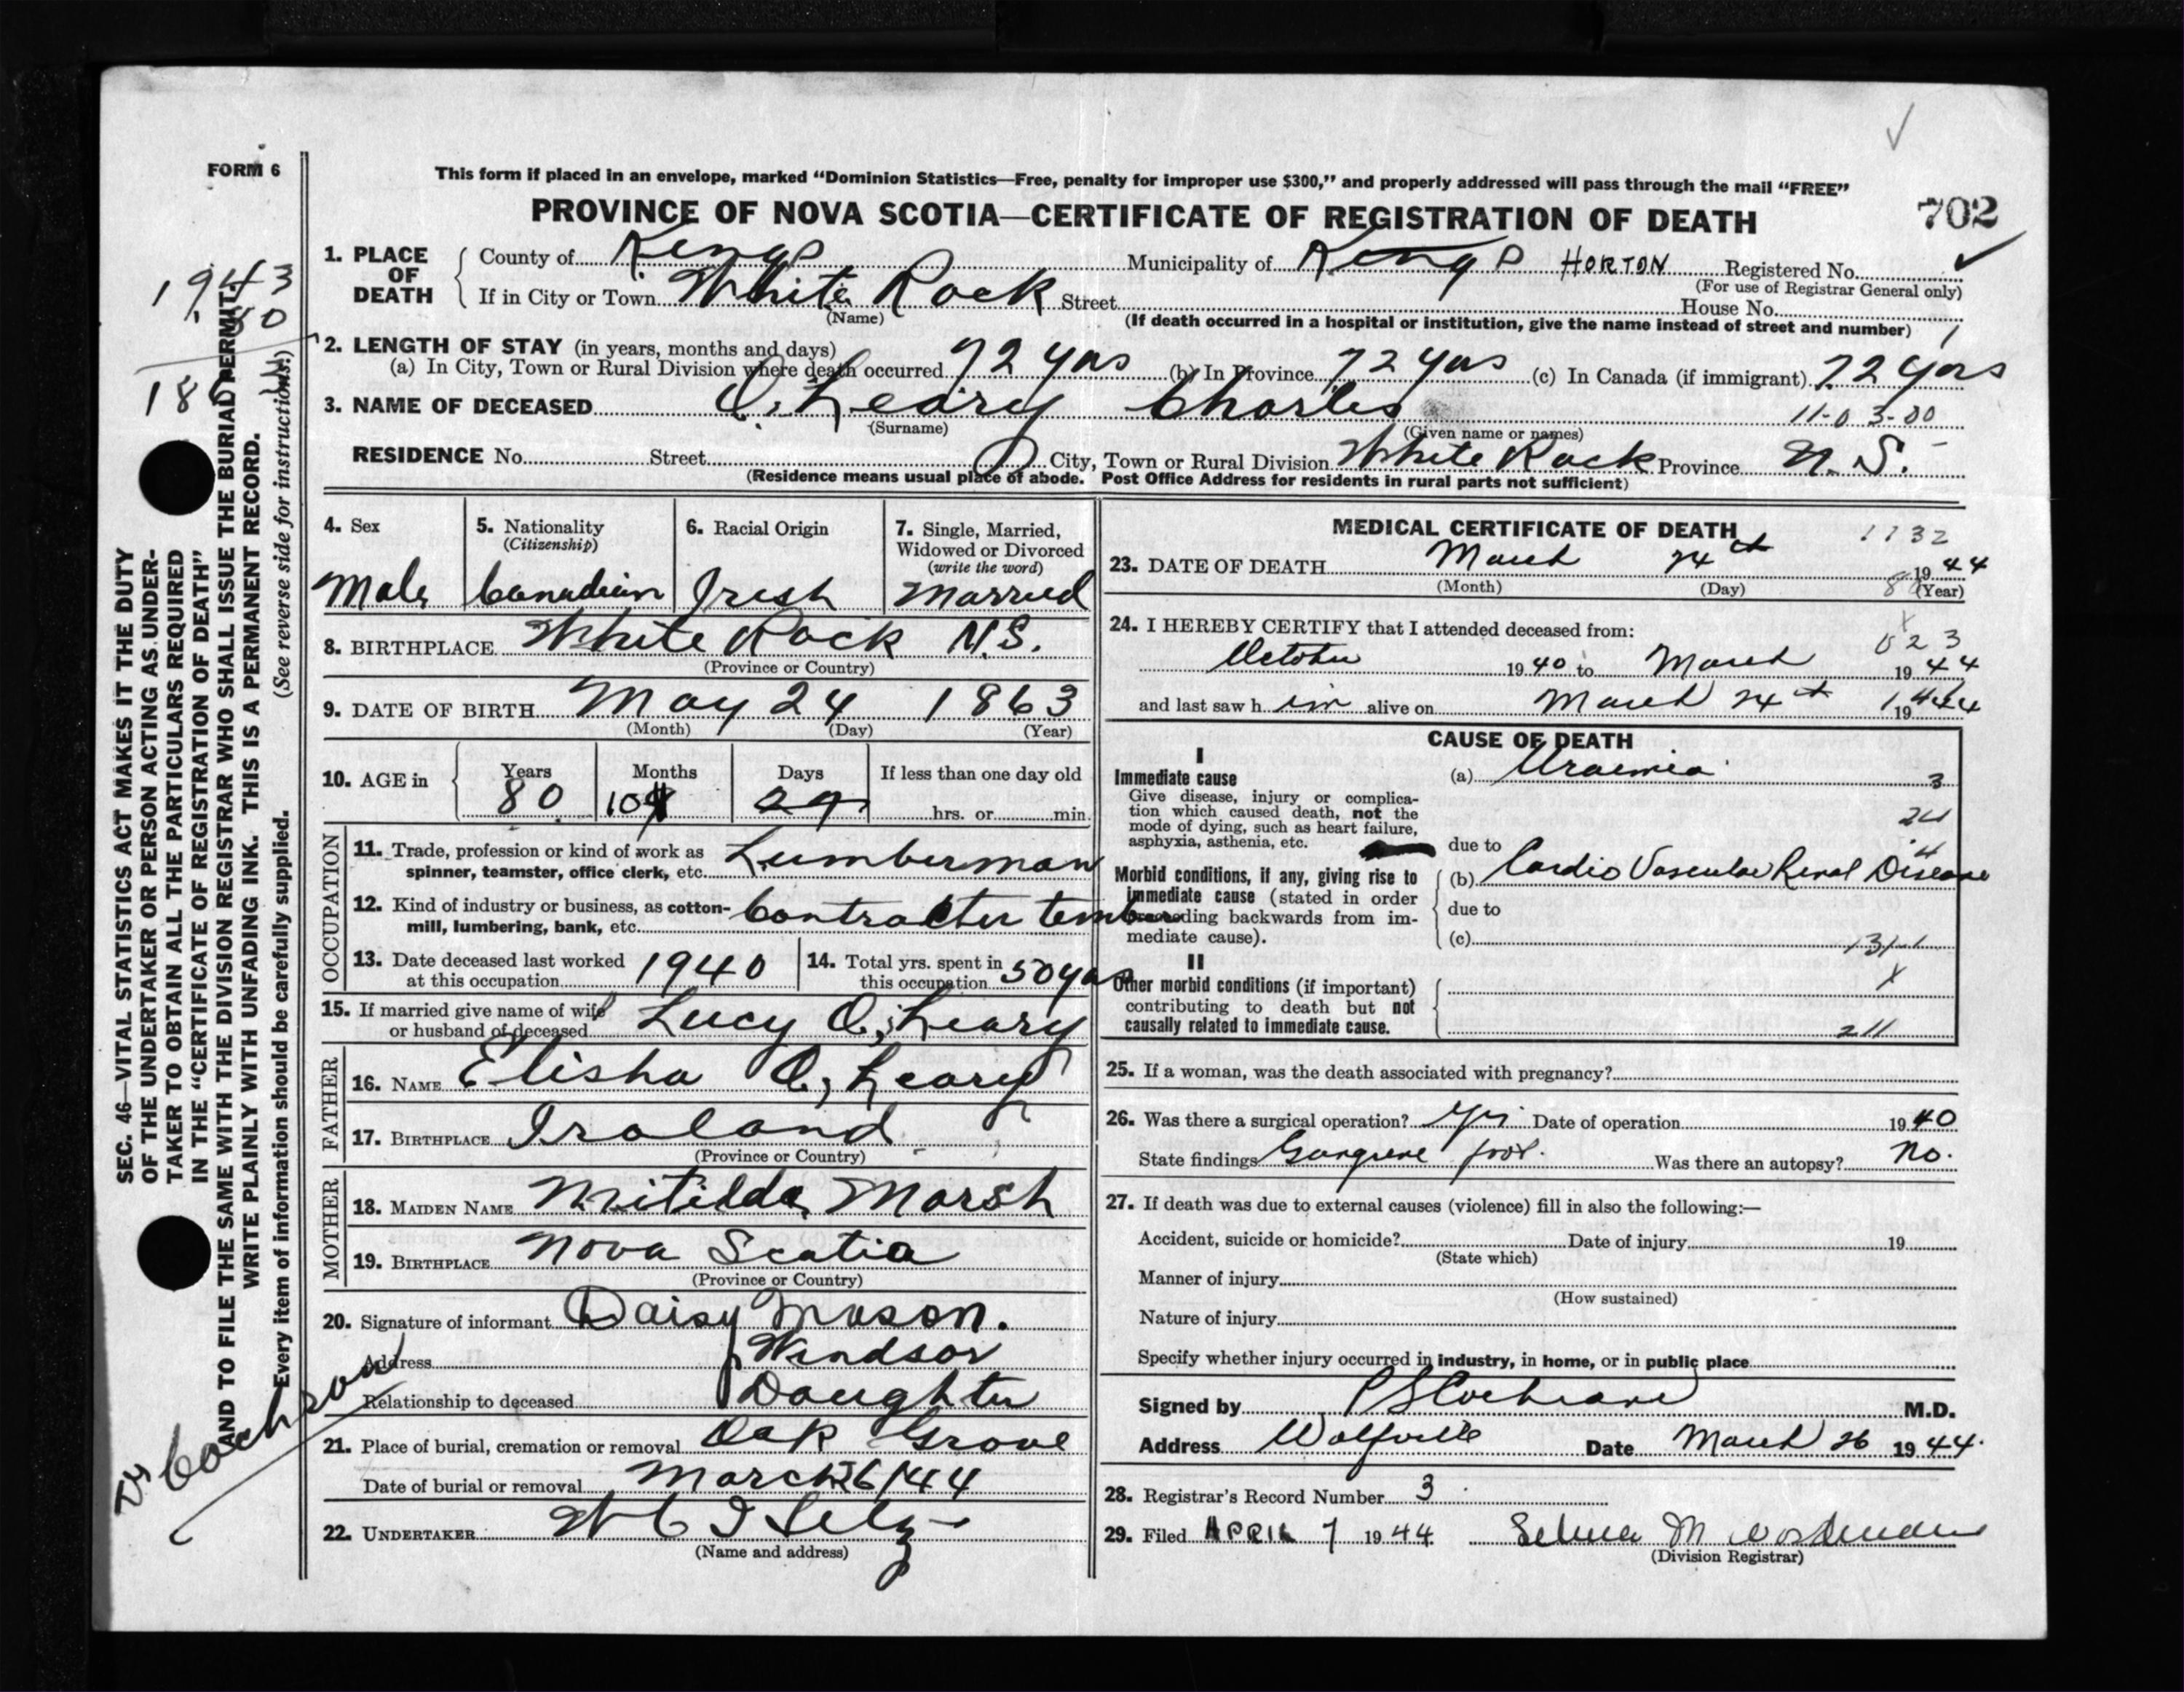 FORM 6
This form if placed in an envelope, marked “Dominion Statistics—Free, penalty for improper use $300,” and properly addressed will pass through the mail “FREE”
PROVINCE OF NOVA SCOTIA—CERTIFICATE OF REGISTRATION OF DEATH
702
1. PLACE OF DEATH
County of Kings Municipality of Kings HORTON Registered No.
(For use of Registrar General only)
If in City or Town White Rock Street House No.
(Name)
(If death occurred in a hospital or institution, give the name instead of street and number)
2. LENGTH OF STAY (in years, months and days)
(a) In City, Town or Rural Division where death occurred 72 yrs (b) In Province 72 yrs (c) In Canada (if immigrant) 72 yrs
3. NAME OF DECEASED O'Leary Charles 11-03-00
(Surname) (Given name or names)
RESIDENCE No. Street City, Town or Rural Division White Rock Province N.S.
(Residence means usual place of abode. Post Office Address for residents in rural parts not sufficient)
4. Sex
Male
5. Nationality
(Citizenship)
Canadian
6. Racial Origin
Irish
7. Single, Married, Widowed or Divorced
(write the word)
Married
8. BIRTHPLACE White Rock N.S.
(Province or Country)
9. DATE OF BIRTH May 24 1863
(Month) (Day) (Year)
10. AGE in Years Months Days If less than one day old
80 10 hrs. or min.
OCCUPATION
11. Trade, profession or kind of work as
spinner, teamster, office clerk, etc. Lumberman
12. Kind of industry or business, as cotton-
mill, lumbering, bank, etc. Contracter
13. Date deceased last worked
at this occupation 1940
14. Total yrs. spent in
this occupation 50 yrs
15. If married give name of wife
or husband of deceased Lucy O'Leary
FATHER
16. NAME Elisha O'Leary
17. BIRTHPLACE Iraland
(Province or Country)
MOTHER
18. MAIDEN NAME Mitilda Marsh
19. BIRTHPLACE Nova Scotia
(Province or Country)
20. Signature of informant Daisy Mason.
Address Windsor
Relationship to deceased Daughter
21. Place of burial, cremation or removal Oak Grove
Date of burial or removal March 26/44
22. UNDERTAKER
(Name and address)
MEDICAL CERTIFICATE OF DEATH 1132
23. DATE OF DEATH March 24th 1944
(Month) (Day) (Year)
24. I HEREBY CERTIFY that I attended deceased from:
023
October 1940 to March 1944
and last saw him alive on March 24th 1944
CAUSE OF DEATH
I
Immediate cause (a) Uraemia 3
Give disease, injury or complica-
tion which caused death, not the
mode of dying, such as heart failure,
asphyxia, asthenia, etc. due to
Morbid conditions, if any, giving rise to (b) Cardio Vascular Renal Disease
immediate cause (stated in order
proceeding backwards from im- due to
mediate cause). (c) 131-1
II
Other morbid conditions (if important)
contributing to death but not
causally related to immediate cause. 211
25. If a woman, was the death associated with pregnancy?
26. Was there a surgical operation? Yes Date of operation 1940
State findings Gangrene foot. Was there an autopsy? No.
27. If death was due to external causes (violence) fill in also the following:—
Accident, suicide or homicide? Date of injury 19
(State which)
Manner of injury
(How sustained)
Nature of injury
Specify whether injury occurred in industry, in home, or in public place
Signed by P S Cochrane M.D.
Address Wolfville Date March 26 1944.
28. Registrar's Record Number 3
29. Filed APRIL 7 1944 Selma M
(Division Registrar)
SEC. 46—VITAL STATISTICS ACT MAKES IT THE DUTY
OF THE UNDERTAKER OR PERSON ACTING AS UNDER-
TAKER TO OBTAIN ALL THE PARTICULARS REQUIRED
IN THE “CERTIFICATE OF REGISTRATION OF DEATH”
AND TO FILE THE SAME WITH THE DIVISION REGISTRAR WHO SHALL ISSUE THE BURIAL PERMIT.
WRITE PLAINLY WITH UNFADING INK. THIS IS A PERMANENT RECORD.
Every item of information should be carefully supplied. (See reverse side for instructions.)
1943
80